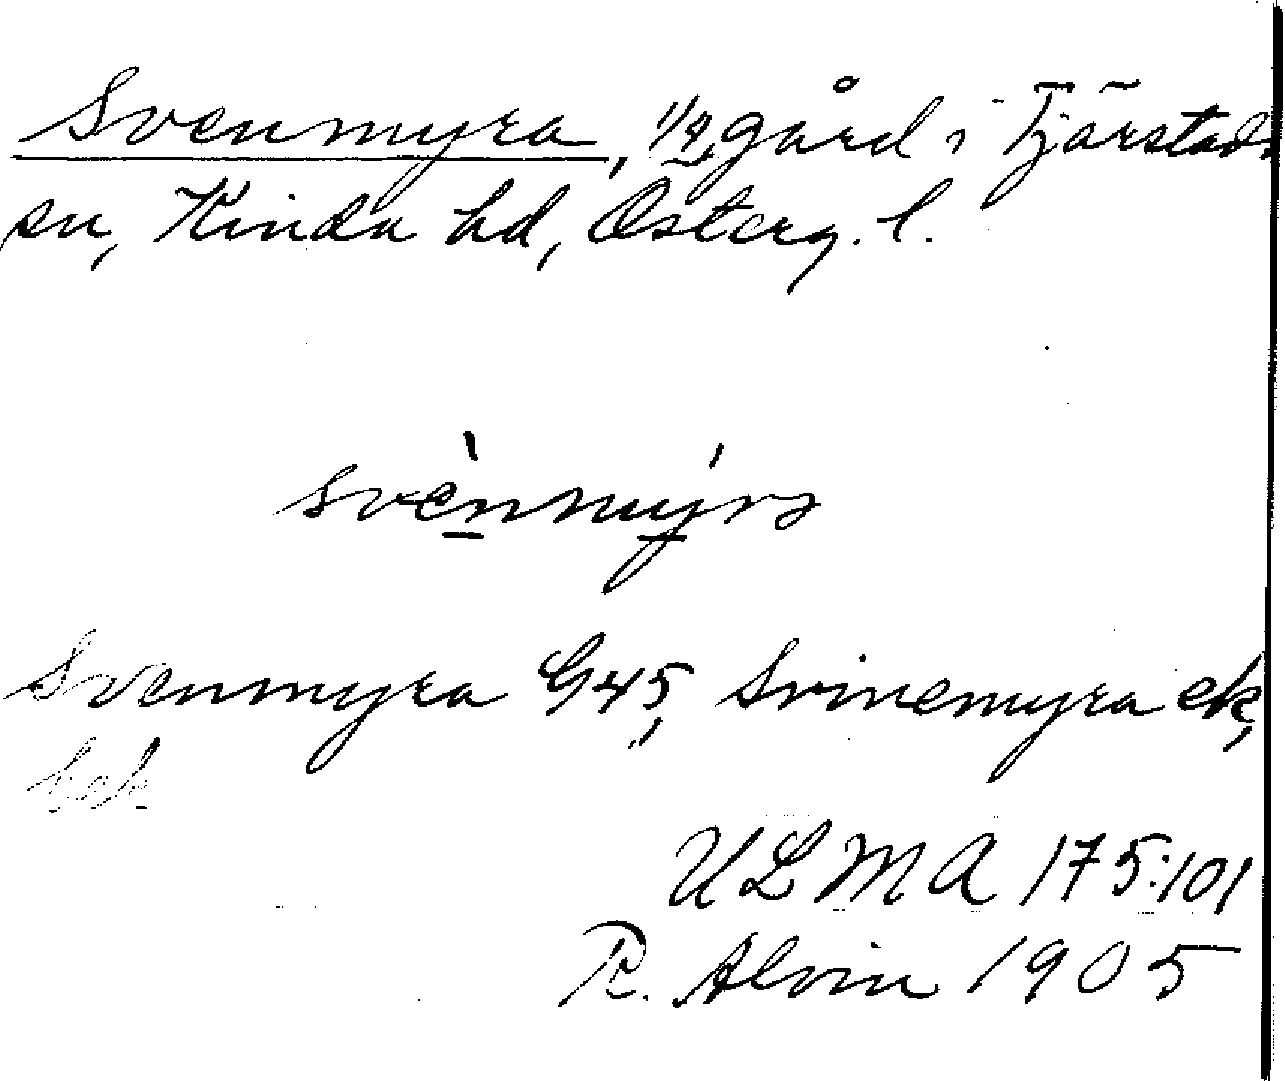 Svenmyra, 1/2 gård i Tjärstads
sn, Kinda hd, Österg. l.
svènmýrə
Svenmyra G45, Svinemyra ek,
bok
ULMA 175:101
R. Alvin 1905